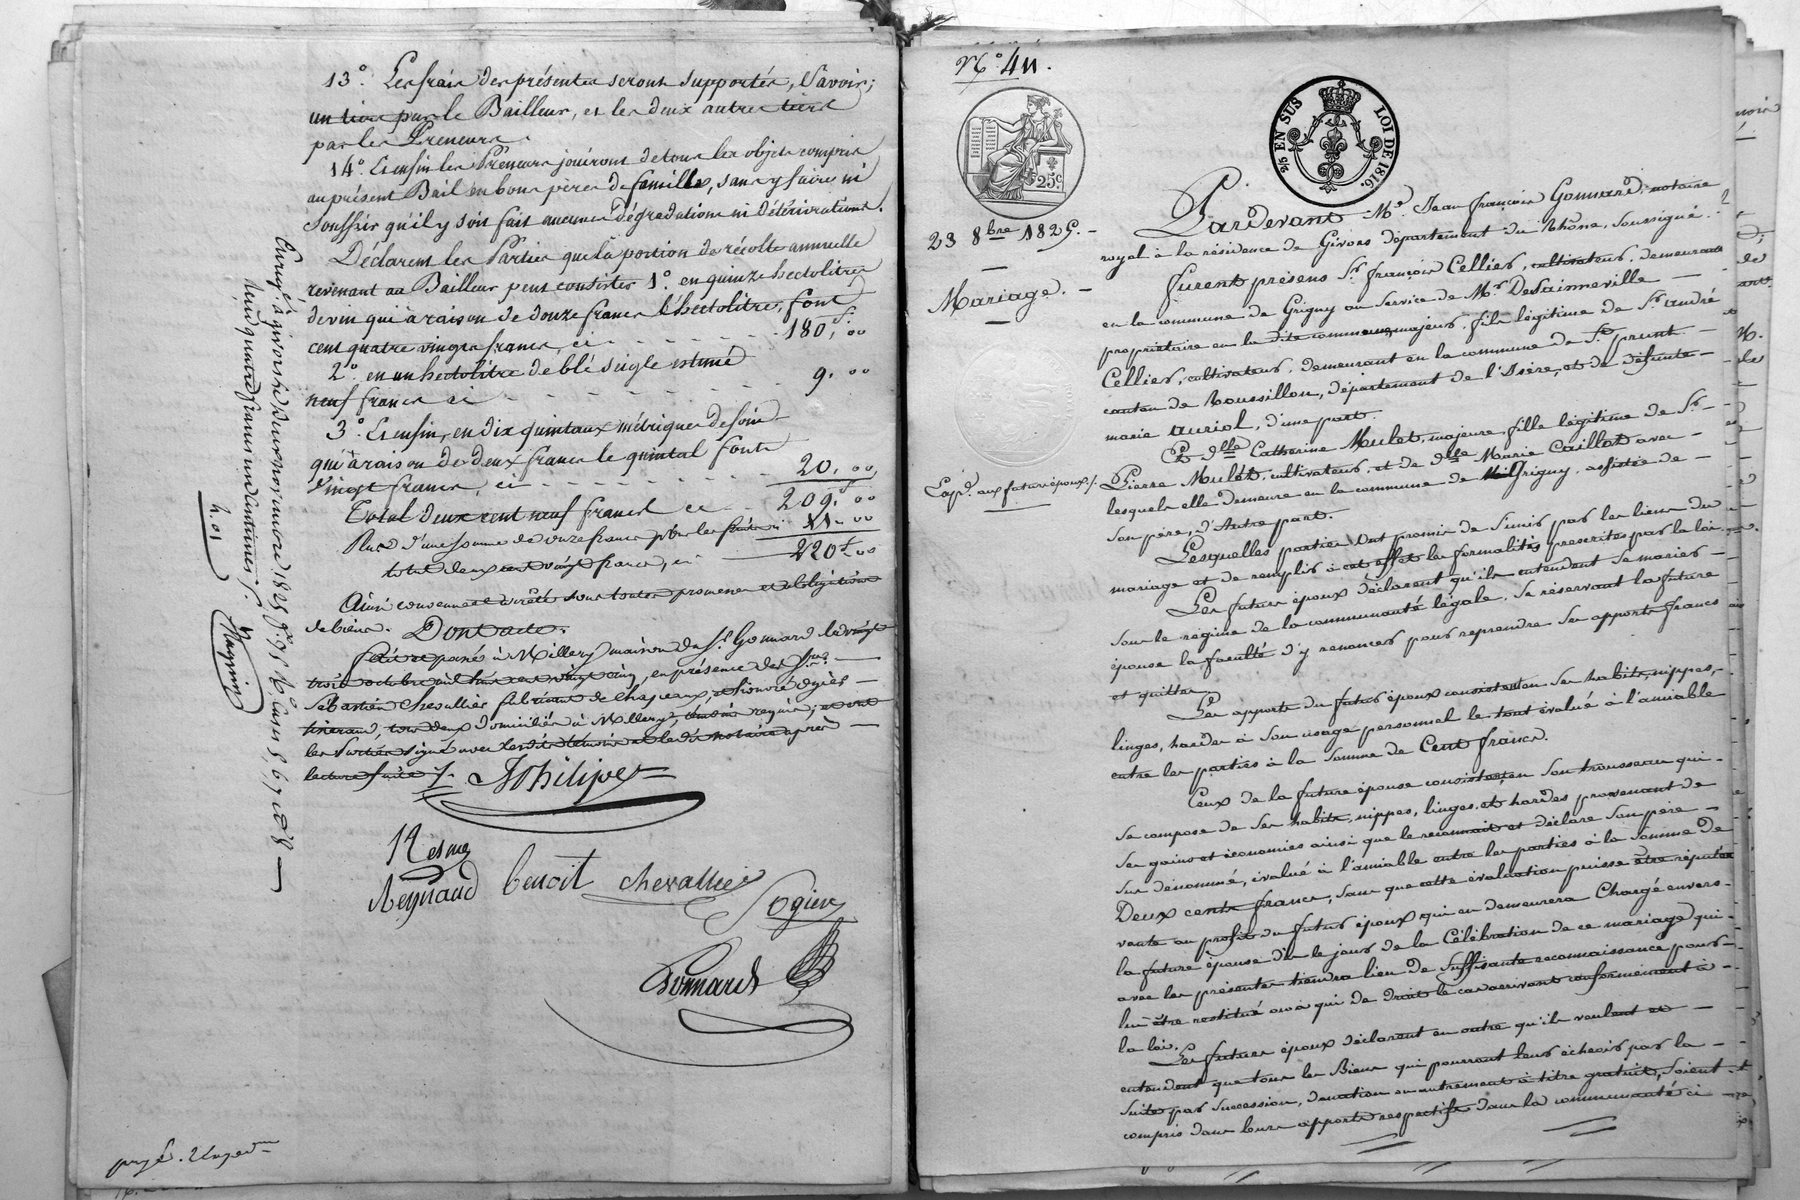 13.° Les frais des présentes seront supportés, Savoir;
un tiers par le Bailleur, et les deux autres tiers
par les Preneurs.
14.° Et enfin les Preneurs jouiront de tous les objets compris
au présent Bail en bons pères de famille, sans y faire ni
souffrir qu'il y soit fait aucunes dégradations ni détériorations.
Déclarent les Parties que la portion de récolte annuelle
revenant au Bailleur peut consister 1.° en quinze hectolitres
de vin qui à raison de douze francs l'hectolitre, font
cent quatre vingts francs, ci - - - - - - 180.f 00
2.° en un hectolitre de blé seigle estimé
neuf francs ci - - - - - - 9. 00
3.° Et enfin, en dix quintaux métriques de foin
qui à raison de deux francs le quintal font
vingt francs, ci - - - - - - 20. 00
Total deux cent neuf francs ci - - 209.f 00
Plus d'une somme de onze francs pour les 11. 00
total deux cent vingt francs, ci 220.f 00
Ainsi convenu et arrêté sous toutes promesses et obligations
de biens. Dont acte.
Fait et passé à Millery maison du S.r Gonnard le vingt
trois octobre mil huit cent vingt cinq, en présence des S.rs
Sébastien Chevallier fabricant de chapeaux, et
tous deux domiciliés à Millery, témoins requis; et ont
les Parties signé avec lesdits témoins et ledit notaire après
lecture faite ./.
JPhilipe
Resmy
Reynaud benoit chevallier
Sogier
Gonnard
Enreg.é à givors le deux novembre 1825 f.o 95 R.o Cases 5, 6, 7 et 8
4.01
N.° 411.
25.c
25 EN SUS LOI DE 1816.
23 8bre 1825. -
Mariage. -
Exp.é aux futurs époux /.
Pardevant M.e Jean françois Gonnard, notaire
royal à la résidence de Givors département du Rhône, soussigné.
furent présens S.r françois Cellier, cultivateur, demeurant
en la commune de Grigny au service de M.r DeSainneville
propriétaire en la dite commune, majeur, fils légitime de S.r andré
Cellier, cultivateur, demeurant en la commune de S.t prient
canton de Roussillon, département de l'Isère, et de défunte
marie auriol, d'une part.
Et D.lle Catherine Mulet, majeure fille légitime de S.r
Pierre Mulet, cultivateur, et de d.lle Marie Caillot avec
lesquels elle demeure en la commune de Grigny, assistée de
son père, d'Autre part.
Lesquelles parties ont promis de s'unir par les liens du
mariage et de remplir à cet effet les formalités prescrites par la loi.
Les futurs époux déclarent qu'ils entendent se marier
sous le régime de la communauté légale, se réservant la future
épouse la faculté d'y renoncer pour reprendre ses apports francs
et quittes.
Les apports du futur époux consistent en ses habits, nippes,
linges, hardes à son usage personnel le tout évalué à l'amiable
entre les parties à la somme de Cent francs.
Ceux de la future épouse consistent en son trousseau qui
se compose de ses habits, nippes, linges, et hardes provenant de
ses gains et économies ainsi que le reconnait et déclare son père
sus dénommé, évalué à l'amiable entre les parties à la somme de
Deux cents francs, sans que cette évaluation puisse être réputée
vente au profit du futur époux qui en demeurera Chargé envers
la future épouse dès le jour de la Célébration de ce mariage qui
avec les présentes tiendra lieu de suffisante reconnaissance pour
lui être restitué ou à qui de droit le cas arrivant conformément à
la loi.
Les futurs époux déclarent en outre qu'ils veulent et
entendent que tous les Biens qui pourront leur échoir par la
suite par succession, donation ou autrement à titre gratuit, soient
compris dans leurs apports respectifs dans la communauté ci